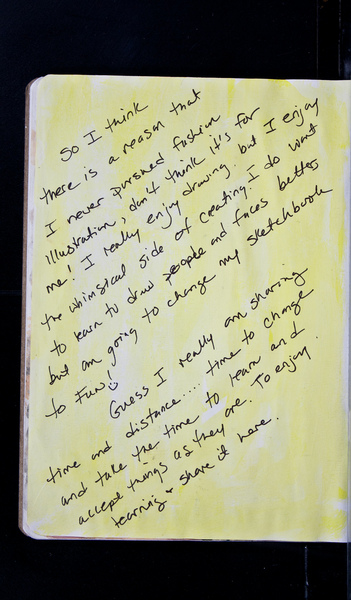 So I think
there is a reason that
I never pursued fashion
illustration, don't think it's for
me! I really enjoy drawing. but I enjoy
the whimsical side of creating. I do want
to learn to draw people and faces better
but am going to change my sketchbook
to Fun!
Guess I really am sharing
time and distance.... time to change
and take the time to learn and
accept things as they are. To enjoy
learning & share it here.